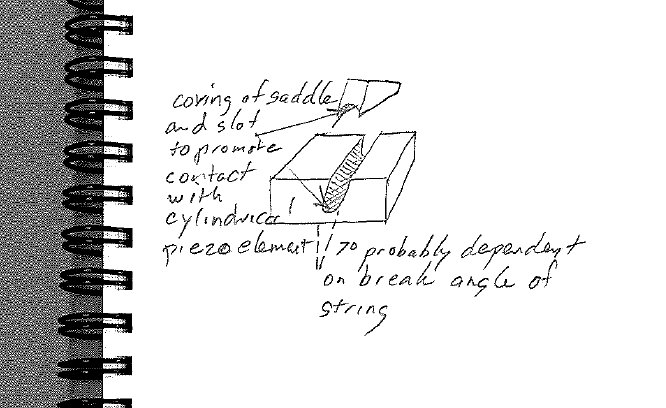 coving of saddle
and slot
to promote
contact
with
cylindrical
piezo element
7° probably dependent
on break angle of
string